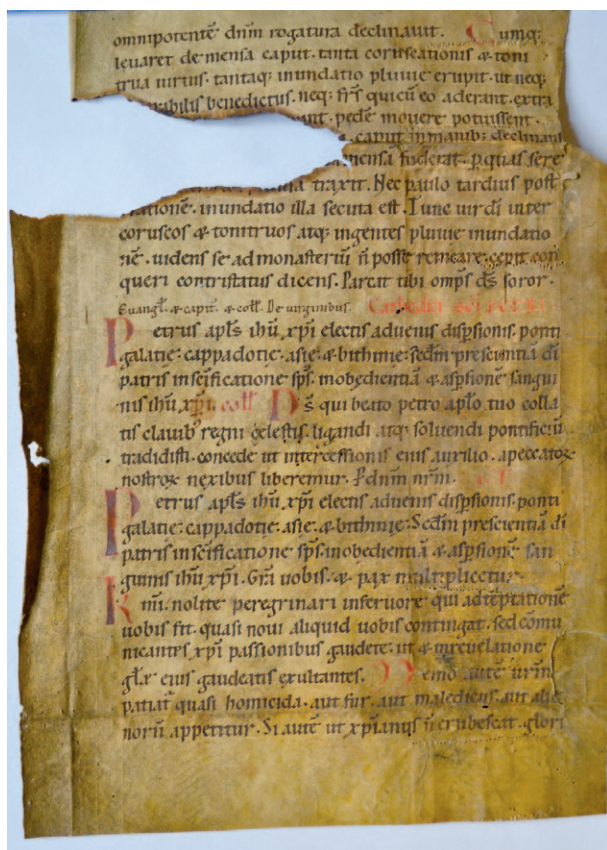 omnipotentē dnm̄ rogatura declinauit. Cumq;
leuaret de mensa caput. tanta coruscationis & toni
trua uirtus. tantaq; inundatio pluuie erupit. ut neq;
benedictus. neq; frs̄ qui cū eo aderant. extra
pedē mouere potuissent.
caput in manib; declinans
mensa fuderat. p quas sere
traxit. Nec paulo tardius post
inundatio illa secuta est. Tunc uir dī inter
coruscos & tonitruos atq; ingentes pluuie inundatio
nē. uidens se ad monasteriū n̄ posse remeare. cepit con
queri contristatus dicens. Parcat tibi omps̄ ds̄ soror.
Euangl̄. & capit̄. & coll̄. De uirginibus. Cathedra sc̄i petri
Petrus apls̄ ihū xp̄i electis aduenis dispsionis. ponti
galatie: cappadotie: asie: & bithinie: sedm̄ prescientiā dī
patris in sc̄ificatione sps̄. in obedientiā & aspsionē sangui
nis ihū xp̄i. coll̄ Ds̄ qui beato petro aplo tuo colla
tis clauib; regni celestis. ligandi atq; soluendi pontificiū
tradidisti. concede ut intercessionis eius auxilio. a peccatoꝝ
nostroꝝ nexibus liberemur. P dnm̄ nrm̄.
Petrus apls̄ ihū xp̄i electis aduenis dispsionis. ponti
galatie: cappadotie: asie: & bithinie: Sedm̄ prescientiā dī
patris in sc̄ificatione sps̄. in obedientiā & aspsionē san
guinis ihū xp̄i. Grā uobis. & pax multiplicetur.
Kmī. nolite peregrinari in feruore qui ad tēptationē
uobis fit. quasi noui aliquid uobis contingat. sed comu
nicantes xp̄i passionibus gaudete: ut & in reuelatione
gl̄e eius gaudeatis exultantes. Nemo autē urm̄
patiat̄ quasi homicida. aut fur. aut maledicus. aut alie
norū appetitur. Si autē ut xp̄ianus n̄ erubescat. glori